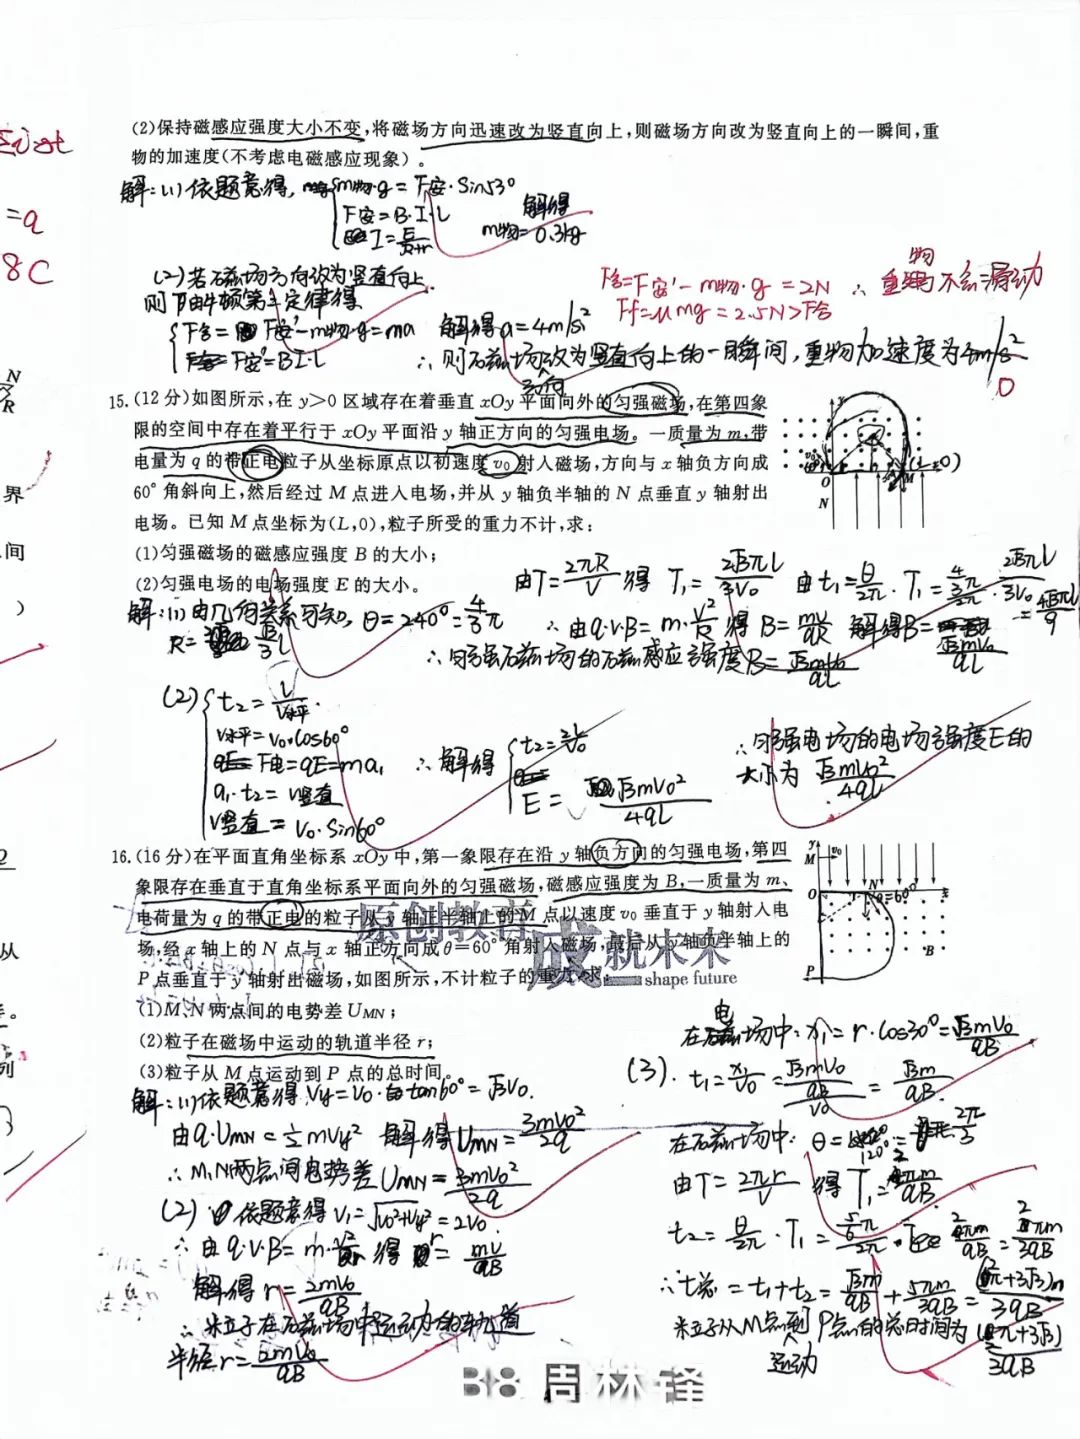 (2)保持磁感应强度大小不变,将磁场方向迅速改为竖直向上,则磁场方向改为竖直向上的一瞬间,重
物的加速度(不考虑电磁感应现象)。
解:(1)依题意得, m物·g = F安·Sin53°
F安=B·I·L
解得
m物=0.3kg
(2)若磁场方向改为竖直向上
则由牛顿第二定律得
F合=F安'-m物·g=ma 解得a=4m/s²
F安'=BI·L
∴则磁场方向改为竖直向上的一瞬间,重物加速度为4m/s²
F合=F安'-m物·g=2N
Ff=μmg=2.5N>F合
∴重物不会滑动
0
15.(12分)如图所示,在y>0区域存在着垂直xOy平面向外的匀强磁场,在第四象
限的空间中存在着平行于xOy平面沿y轴正方向的匀强电场。一质量为m,带
电量为q的带正电粒子从坐标原点以初速度v₀射入磁场,方向与x轴负方向成
60°角斜向上,然后经过M点进入电场,并从y轴负半轴的N点垂直y轴射出
电场。已知M点坐标为(L,0),粒子所受的重力不计,求:
(1)匀强磁场的磁感应强度B的大小;
(2)匀强电场的电场强度E的大小。
解:(1)由几何关系可知, θ=240°=4/3π
R=√3/3 L
由T=2πR/V 得 T₁=2√3πL/3V₀
∴由q·v·B=m·V²/R 得B=mv/qR 解得B=√3mV₀/qL
∴匀强磁场的磁感应强度B=√3mV₀/qL
(2) t₂=L/V水平
V水平=V₀·cos60°
F电=qE=ma₁
a₁·t₂=V竖直
V竖直=V₀·Sin60°
∴解得
t₂=2L/V₀
E=√3mV₀²/4qL
∴匀强电场的电场强度E的
大小为 √3mV₀²/4qL
16.(16分)在平面直角坐标系xOy中,第一象限存在沿y轴负方向的匀强电场,第四
象限存在垂直于直角坐标系平面向外的匀强磁场,磁感应强度为B,一质量为m、
电荷量为q的带正电的粒子从y轴正半轴上的M点以速度v₀垂直于y轴射入电
场,经x轴上的N点与x轴正方向成θ=60°角射入磁场,最后从y轴负半轴上的
P点垂直于y轴射出磁场,如图所示,不计粒子的重力,求:
原创教育
成就未来
shape future
(1)M、N两点间的电势差U_MN;
(2)粒子在磁场中运动的轨道半径r;
(3)粒子从M点运动到P点的总时间。
解:(1)依题意得,Vy=V₀·tan60°=√3V₀.
由q·U_MN=½mVy² 解得U_MN=3mV₀²/2q
∴M,N两点间电势差U_MN=3mV₀²/2q
(2)依题意得V₁=√(V₀²+Vy²)=2V₀
∴由q·V·B=m·V²/r 得r=mv/qB
解得r=2mV₀/qB
∴粒子在磁场中运动的轨道
半径r=2mV₀/qB
在电场中:x₁=r·cos30°=√3mV₀/qB
(3). t₁=x₁/V₀=√3m/qB
在磁场中: θ=120°=2π/3
由T=2πr/V 得T₁=2πm/qB
t₂=θ/2π·T₁
∴t总=t₁+t₂
粒子从M点运动到P点的总时间为(2π+3√3)m/3qB
B8 周林锋